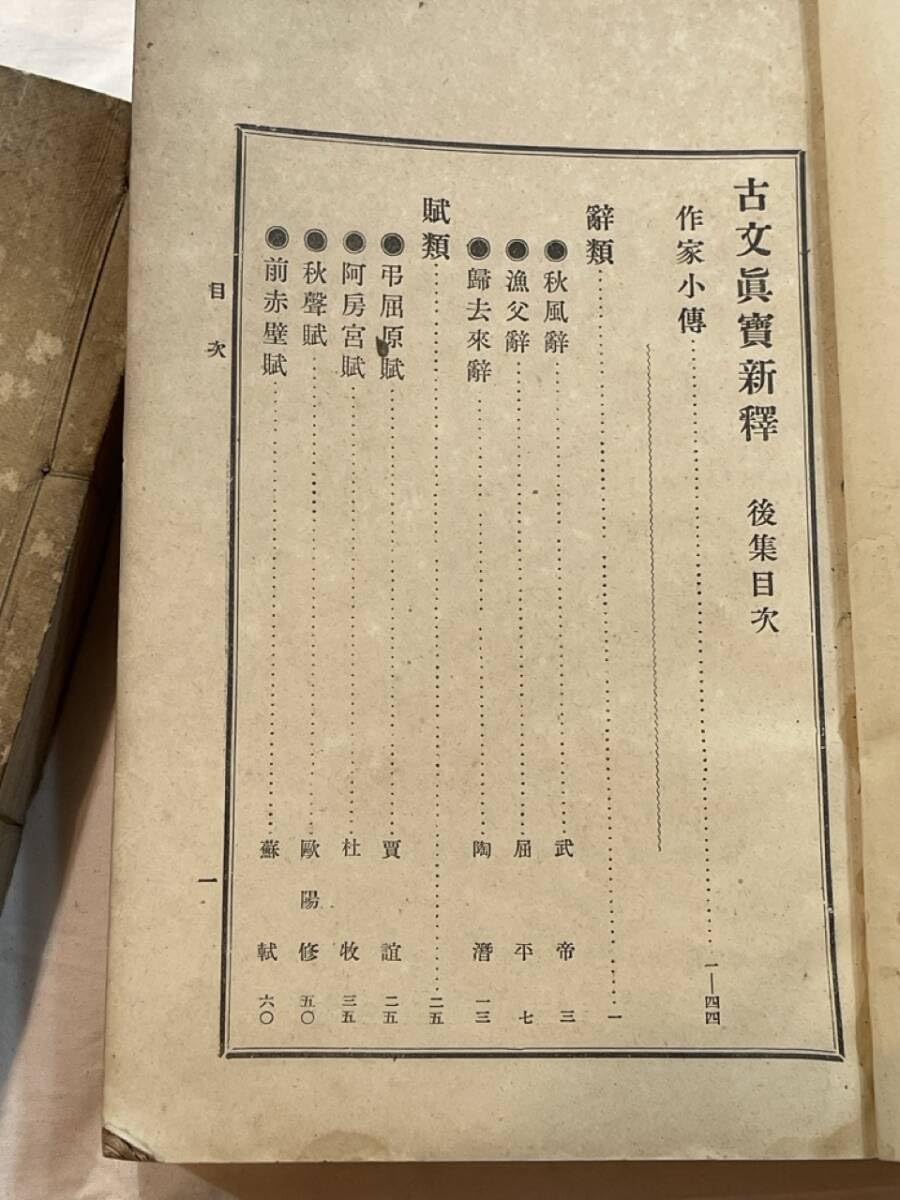 古文眞寶新釋 後集目次
作家小傳……一—四四
辭類……一
●秋風辭……武帝 三
●漁父辭……屈平 七
●歸去來辭……陶潛 一三
賦類……二五
●弔屈原賦……賈誼 二五
●阿房宮賦……杜牧 三五
●秋聲賦……歐陽修 五〇
●前赤壁賦……蘇軾 六〇
目次 一